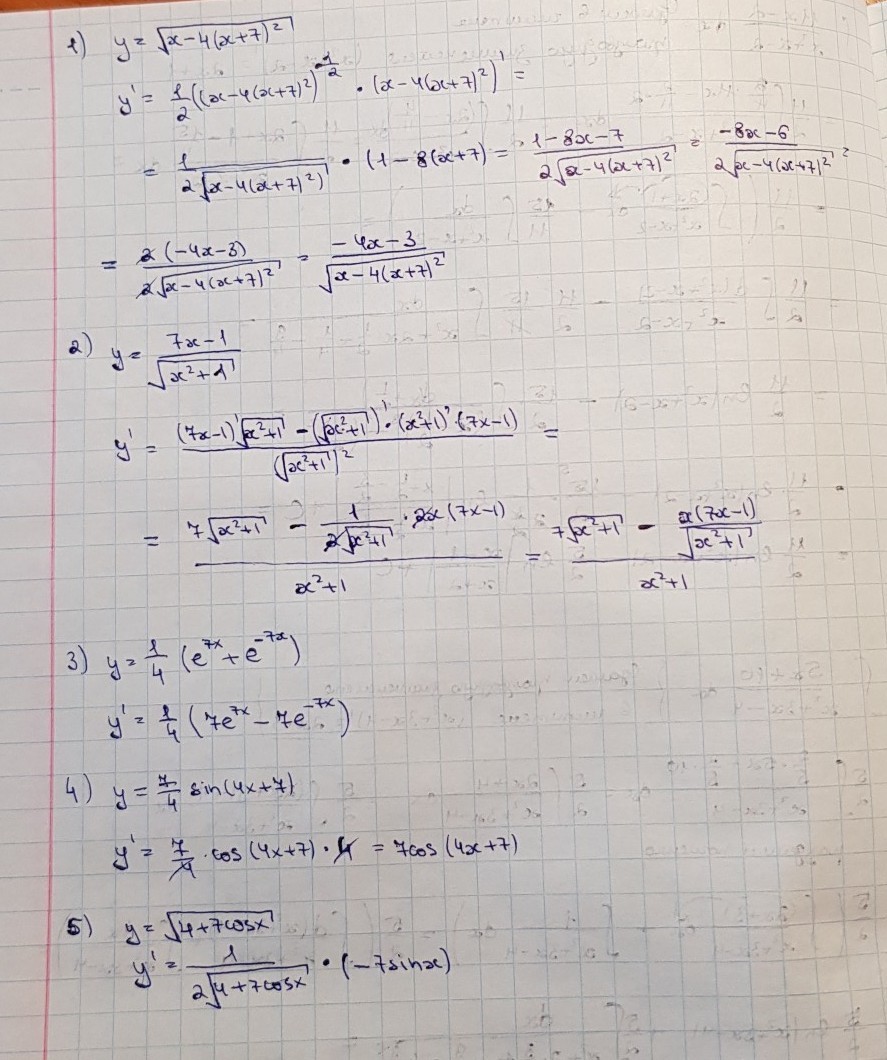 1) y = √(x-4(x+7)²)
y' = 1/2 ((x-4(x+7)²)^(-1/2) · (x-4(x+7)²)' =
= 1/(2√(x-4(x+7)²)) · (1-8(x+7) = (1-8x-7)/(2√(x-4(x+7)²)) = (-8x-6)/(2√(x-4(x+7)²)) =
= 2(-4x-3)/(2√(x-4(x+7)²)) = (-4x-3)/√(x-4(x+7)²)
2) y = (7x-1)/√(x²+1)
y' = ((7x-1)'√(x²+1) - (√(x²+1))'·(x²+1)'·(7x-1))/(√(x²+1))² =
= (7√(x²+1) - 1/(2√(x²+1)) · 2x(7x-1))/(x²+1) = (7√(x²+1) - x(7x-1)/√(x²+1))/(x²+1)
3) y = 1/4 (e^(7x) + e^(-7x))
y' = 1/4 (7e^(7x) - 7e^(-7x))
4) y = 7/4 sin(4x+7)
y' = 7/4 · cos(4x+7) · 4 = 7cos(4x+7)
5) y = √(4+7cosx)
y' = 1/(2√(4+7cosx)) · (-7sinx)